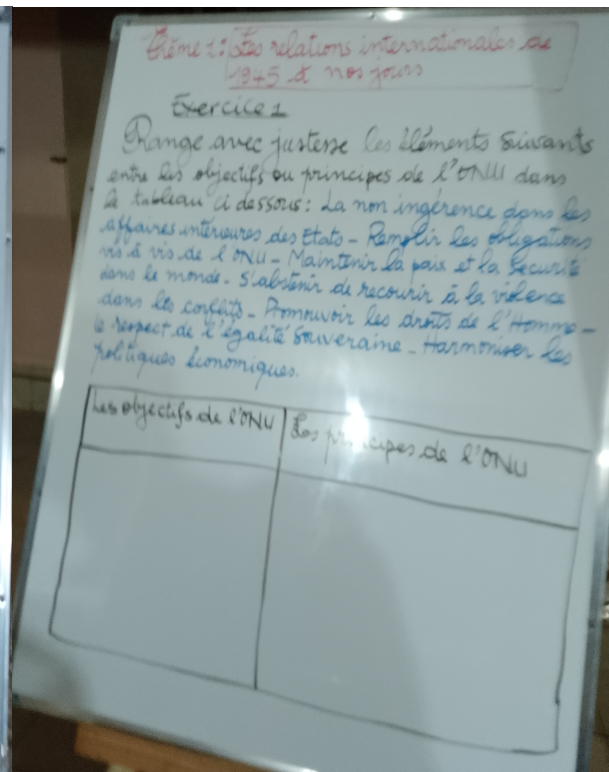 Thème 1: Les relations internationales de
1945 à nos jours
Exercice 1
Range avec justesse les éléments suivants
entre les objectifs ou principes de l'ONU dans
le tableau ci dessous: La non ingérence dans les
affaires intérieures des Etats - Remplir les obligations
vis à vis de l'ONU - Maintenir la paix et la sécurité
dans le monde - S'abstenir de recourir à la violence
dans les conflits - Promouvoir les droits de l'Homme -
le respect de l'égalité souveraine - Harmoniser les
politiques économiques.
Les objectifs de l'ONU
Les principes de l'ONU